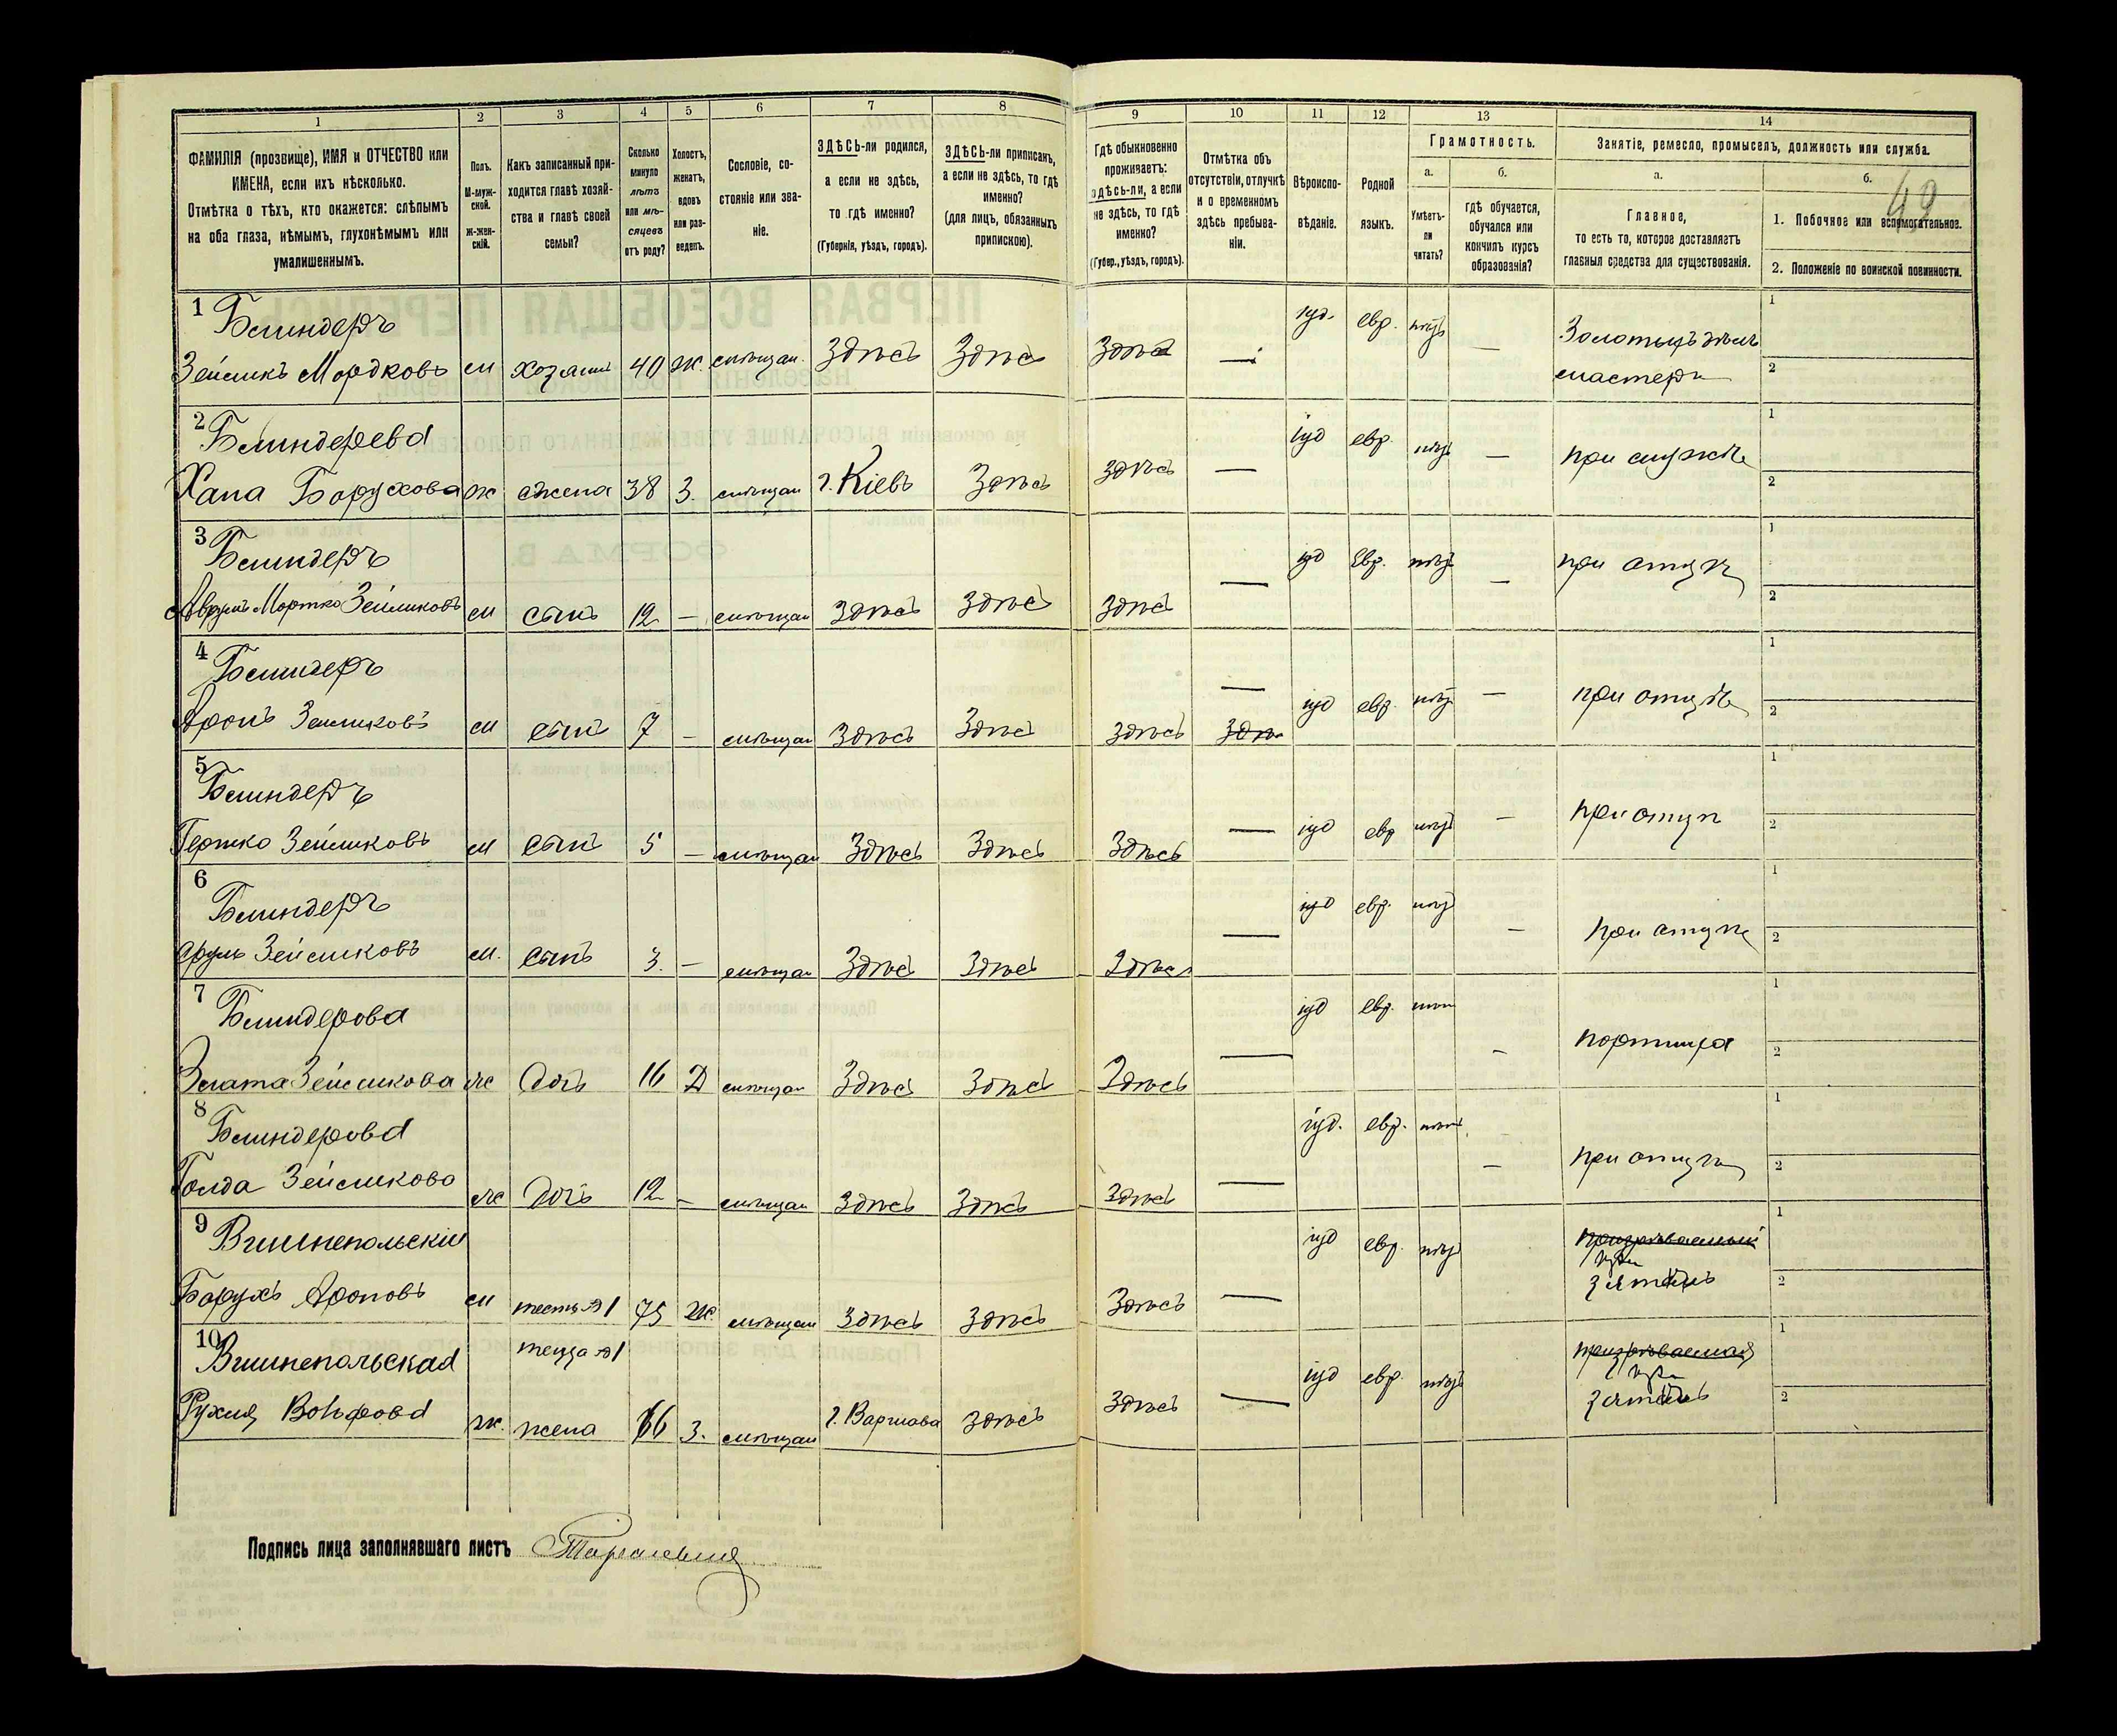 1 2 3 4 5 6 7 8 9 10 11 12 13 14
ФАМИЛІЯ (прозвище), ИМЯ и ОТЧЕСТВО или
ИМЕНА, если ихъ нѣсколько.
Отмѣтка о тѣхъ, кто окажется: слѣпымъ
на оба глаза, нѣмымъ, глухонѣмымъ или
умалишеннымъ.
Полъ.
М-муж-
ской.
Ж-жен-
скій.
Какъ записанный при-
ходится главѣ хозяй-
ства и главѣ своей
семьи?
Сколько
минуло
лѣтъ
или мѣ-
сяцевъ
отъ роду?
Холостъ,
женатъ,
вдовъ
или раз-
веденъ.
Сословіе, со-
стояніе или зва-
ніе.
ЗДѢСЬ-ли родился,
а если не здѣсь,
то гдѣ именно?
(Губернія, уѣздъ, городъ).
ЗДѢСЬ-ли приписанъ,
а если не здѣсь, то гдѣ
именно?
(для лицъ, обязанныхъ
припискою).
Гдѣ обыкновенно
проживаетъ:
здѣсь-ли, а если
не здѣсь, то гдѣ
именно?
(Губер., уѣздъ, городъ).
Отмѣтка объ
отсутствіи, отлучкѣ
и о временномъ
здѣсь пребыва-
ніи.
Вѣроиспо-
вѣданіе.
Родной
языкъ.
Грамотность.
а.
Умѣетъ-
ли
читать?
б.
гдѣ обучается,
обучался или
кончилъ курсъ
образованія?
Занятіе, ремесло, промыселъ, должность или служба.
а.
Главное,
то есть то, которое доставляетъ
главныя средства для существованія.
б.
49
1. Побочное или вспомогательное.
2. Положеніе по воинской повинности.
1 Блиндеръ
Зейликъ Мордковъ м хозяинъ 40 ж. мѣщан. Здѣсь Здѣсь Здѣсь — іуд. евр. — Золотыхъ дѣлъ
мастеръ
1
2
2 Блиндерева
Хана Борухова ж жена 38 З. мѣщан г. Кіевъ Здѣсь здѣсь — іуд евр. — при мужѣ
1
2
3 Блиндеръ
Аврумъ Мортко Зейликовъ м сынъ 12 — мѣщан здѣсь здѣсь здѣсь — іуд Евр. — при отцѣ
1
2
4 Блиндеръ
Аронъ Зейликовъ м сынъ 7 — мѣщан здѣсь здѣсь здѣсь — іуд евр. — при отцѣ
1
2
5 Блиндеръ
Гершко Зейликовъ м сынъ 5 — мѣщан здѣсь здѣсь здѣсь — іуд евр — при отцѣ
1
2
6 Блиндеръ
Сруль Зейликовъ м. сынъ 3. — мѣщан здѣсь здѣсь здѣсь — іуд евр. — при отцѣ
1
2
7 Блиндерова
Злата Зейликова ж дочь 16 Д мѣщан здѣсь здѣсь здѣсь — іуд евр. — портниха
1
2
8 Блиндерова
Голда Зейликова ж дочь 12 — мѣщан здѣсь здѣсь здѣсь — іуд. евр. — при отцѣ
1
2
9 Вишнепольскій
Борухъ Ароновъ м тесть № 1 75 ж. мѣщан здѣсь здѣсь здѣсь — іуд евр. призрѣваемый
при
зятѣ
1
2
10 Вишнепольская теща № 1
Рухля Вольфова ж. жена 66 З. мѣщан г. Варшава здѣсь здѣсь — іуд евр. призрѣваемая
при
зятѣ
1
2
Подпись лица заполнявшаго листъ